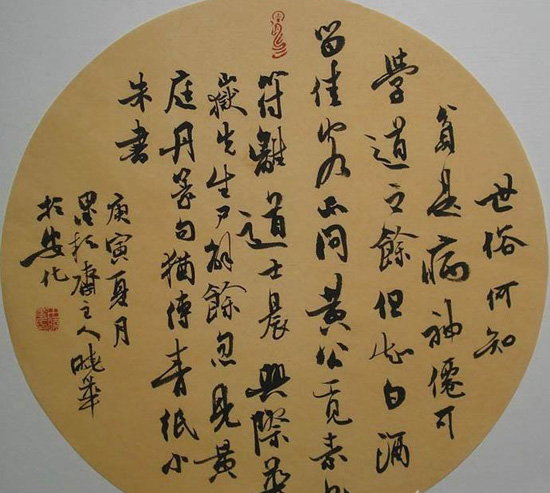 世俗何知
貧是病神僊可
學道之餘但知白酒
留佳客不問黃公覓素
符離道士晨興際華
嶽先生尸解餘忽見黃
庭丹篆句猶傳青紙小
朱書
庚寅夏月
墨松齋主人曉華
於安化